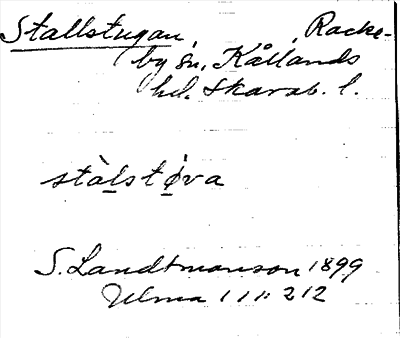 Stallstugan, Racke-
by sn, Kållands
hd. Skarab. l.
stàlstǿva
S. Landtmanson 1899
Ulma 111:212